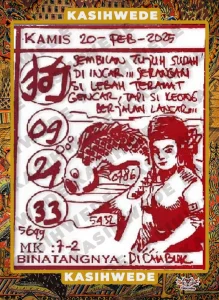 KASIHWEDE
KAMIS 20-FEB-2025
SEMBILAN TUJUH SUDAH
DI INCAR!!! SERANGAN
SI LEBAH TERAMAT
GENCAR, TAPI SI KECOAK
BERJALAN LANCAR!!!
09
21
33
5432
MK :7-2
BINATANGNYA : DI CAMBUK
KASIHWEDE